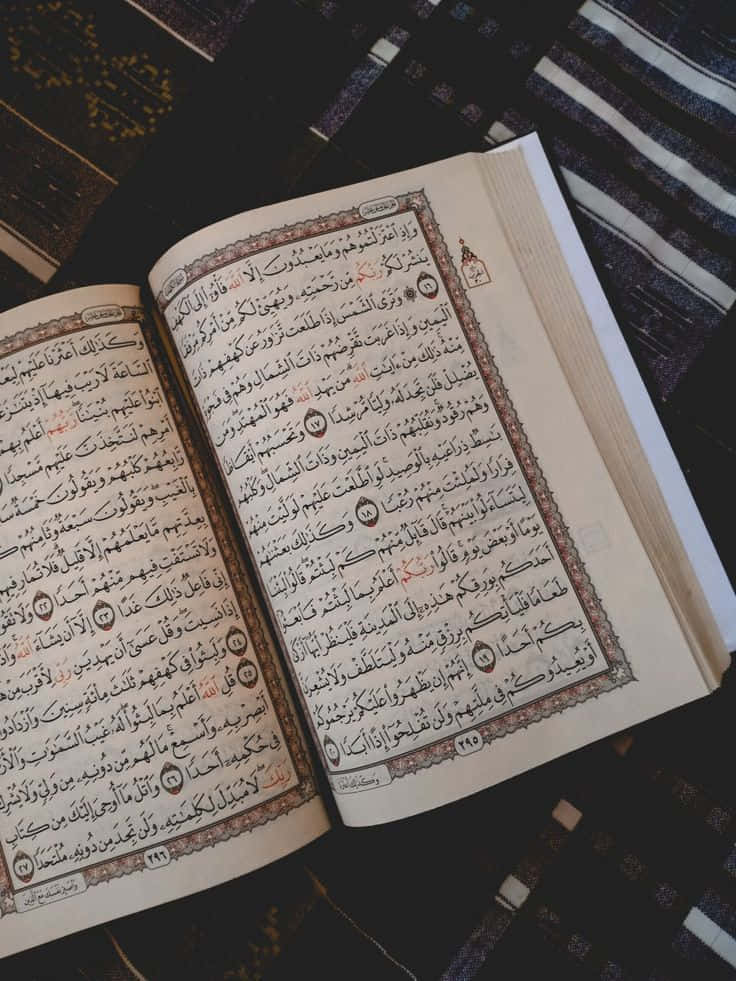 وَإِذِ ٱعْتَزَلْتُمُوهُمْ وَمَا يَعْبُدُونَ إِلَّا ٱللَّهَ فَأْوُۥٓا۟ إِلَى ٱلْكَهْفِ
يَنشُرْ لَكُمْ رَبُّكُم مِّن رَّحْمَتِهِۦ وَيُهَيِّئْ لَكُم مِّنْ أَمْرِكُم مِّرْفَقًا
١٦ ۞ وَتَرَى ٱلشَّمْسَ إِذَا طَلَعَت تَّزَٰوَرُ عَن كَهْفِهِمْ ذَاتَ
ٱلْيَمِينِ وَإِذَا غَرَبَت تَّقْرِضُهُمْ ذَاتَ ٱلشِّمَالِ وَهُمْ فِى فَجْوَةٍ
مِّنْهُ ۚ ذَٰلِكَ مِنْ ءَايَـٰتِ ٱللَّهِ ۗ مَن يَهْدِ ٱللَّهُ فَهُوَ ٱلْمُهْتَدِ ۖ وَمَن
يُضْلِلْ فَلَن تَجِدَ لَهُۥ وَلِيًّا مُّرْشِدًا ١٧ وَتَحْسَبُهُمْ أَيْقَاظًا
وَهُمْ رُقُودٌ ۚ وَنُقَلِّبُهُمْ ذَاتَ ٱلْيَمِينِ وَذَاتَ ٱلشِّمَالِ ۖ وَكَلْبُهُم
بَـٰسِطٌ ذِرَاعَيْهِ بِٱلْوَصِيدِ ۚ لَوِ ٱطَّلَعْتَ عَلَيْهِمْ لَوَلَّيْتَ مِنْهُمْ
فِرَارًا وَلَمُلِئْتَ مِنْهُمْ رُعْبًا ١٨ وَكَذَٰلِكَ بَعَثْنَـٰهُمْ
لِيَتَسَآءَلُوا۟ بَيْنَهُمْ ۚ قَالَ قَآئِلٌ مِّنْهُمْ كَمْ لَبِثْتُمْ ۖ قَالُوا۟ لَبِثْنَا
يَوْمًا أَوْ بَعْضَ يَوْمٍ ۚ قَالُوا۟ رَبُّكُمْ أَعْلَمُ بِمَا لَبِثْتُمْ فَٱبْعَثُوٓا۟
أَحَدَكُم بِوَرِقِكُمْ هَـٰذِهِۦٓ إِلَى ٱلْمَدِينَةِ فَلْيَنظُرْ أَيُّهَآ أَزْكَىٰ
طَعَامًا فَلْيَأْتِكُم بِرِزْقٍ مِّنْهُ وَلْيَتَلَطَّفْ وَلَا يُشْعِرَنَّ
بِكُمْ أَحَدًا ١٩ إِنَّهُمْ إِن يَظْهَرُوا۟ عَلَيْكُمْ يَرْجُمُوكُمْ
أَوْ يُعِيدُوكُمْ فِى مِلَّتِهِمْ وَلَن تُفْلِحُوٓا۟ إِذًا أَبَدًا ٢٠
٢٩٥
وَكَذَٰلِكَ أَعْثَرْنَا
وَكَذَٰلِكَ أَعْثَرْنَا عَلَيْهِمْ لِيَعْلَمُوٓا۟
ٱلسَّاعَةَ لَا رَيْبَ فِيهَآ إِذْ يَتَنَـٰزَعُونَ
ٱبْنُوا۟ عَلَيْهِم بُنْيَـٰنًا ۖ رَّبُّهُمْ أَعْلَمُ بِهِمْ
أَمْرِهِمْ لَنَتَّخِذَنَّ عَلَيْهِم مَّسْجِدًا
رَّابِعُهُمْ كَلْبُهُمْ وَيَقُولُونَ خَمْسَةٌ
بِٱلْغَيْبِ ۖ وَيَقُولُونَ سَبْعَةٌ وَثَامِنُهُمْ
بِعِدَّتِهِم مَّا يَعْلَمُهُمْ إِلَّا قَلِيلٌ ۗ فَلَا تُمَارِ فِيهِمْ
وَلَا تَسْتَفْتِ فِيهِم مِّنْهُمْ أَحَدًا ٢٢ وَلَا تَقُولَنَّ
إِنِّى فَاعِلٌ ذَٰلِكَ غَدًا ٢٣ إِلَّآ أَن يَشَآءَ ٱللَّهُ ۚ وَٱذْكُر
إِذَا نَسِيتَ وَقُلْ عَسَىٰٓ أَن يَهْدِيَنِ رَبِّى لِأَقْرَبَ مِنْ هَـٰذَا
٢٤ وَلَبِثُوا۟ فِى كَهْفِهِمْ ثَلَـٰثَ مِا۟ئَةٍ سِنِينَ وَٱزْدَادُوا۟
٢٥ قُلِ ٱللَّهُ أَعْلَمُ بِمَا لَبِثُوا۟ ۖ لَهُۥ غَيْبُ ٱلسَّمَـٰوَٰتِ وَٱلْأَرْضِ
أَبْصِرْ بِهِۦ وَأَسْمِعْ ۚ مَا لَهُم مِّن دُونِهِۦ مِن وَلِىٍّ وَلَا يُشْرِكُ
فِى حُكْمِهِۦٓ أَحَدًا ٢٦ وَٱتْلُ مَآ أُوحِىَ إِلَيْكَ مِن كِتَابِ
رَبِّكَ ۖ لَا مُبَدِّلَ لِكَلِمَـٰتِهِۦ وَلَن تَجِدَ مِن دُونِهِۦ مُلْتَحَدًا ٢٧
٢٩٦
وَٱصْبِرْ نَفْسَكَ مَعَ ٱلَّذِينَ